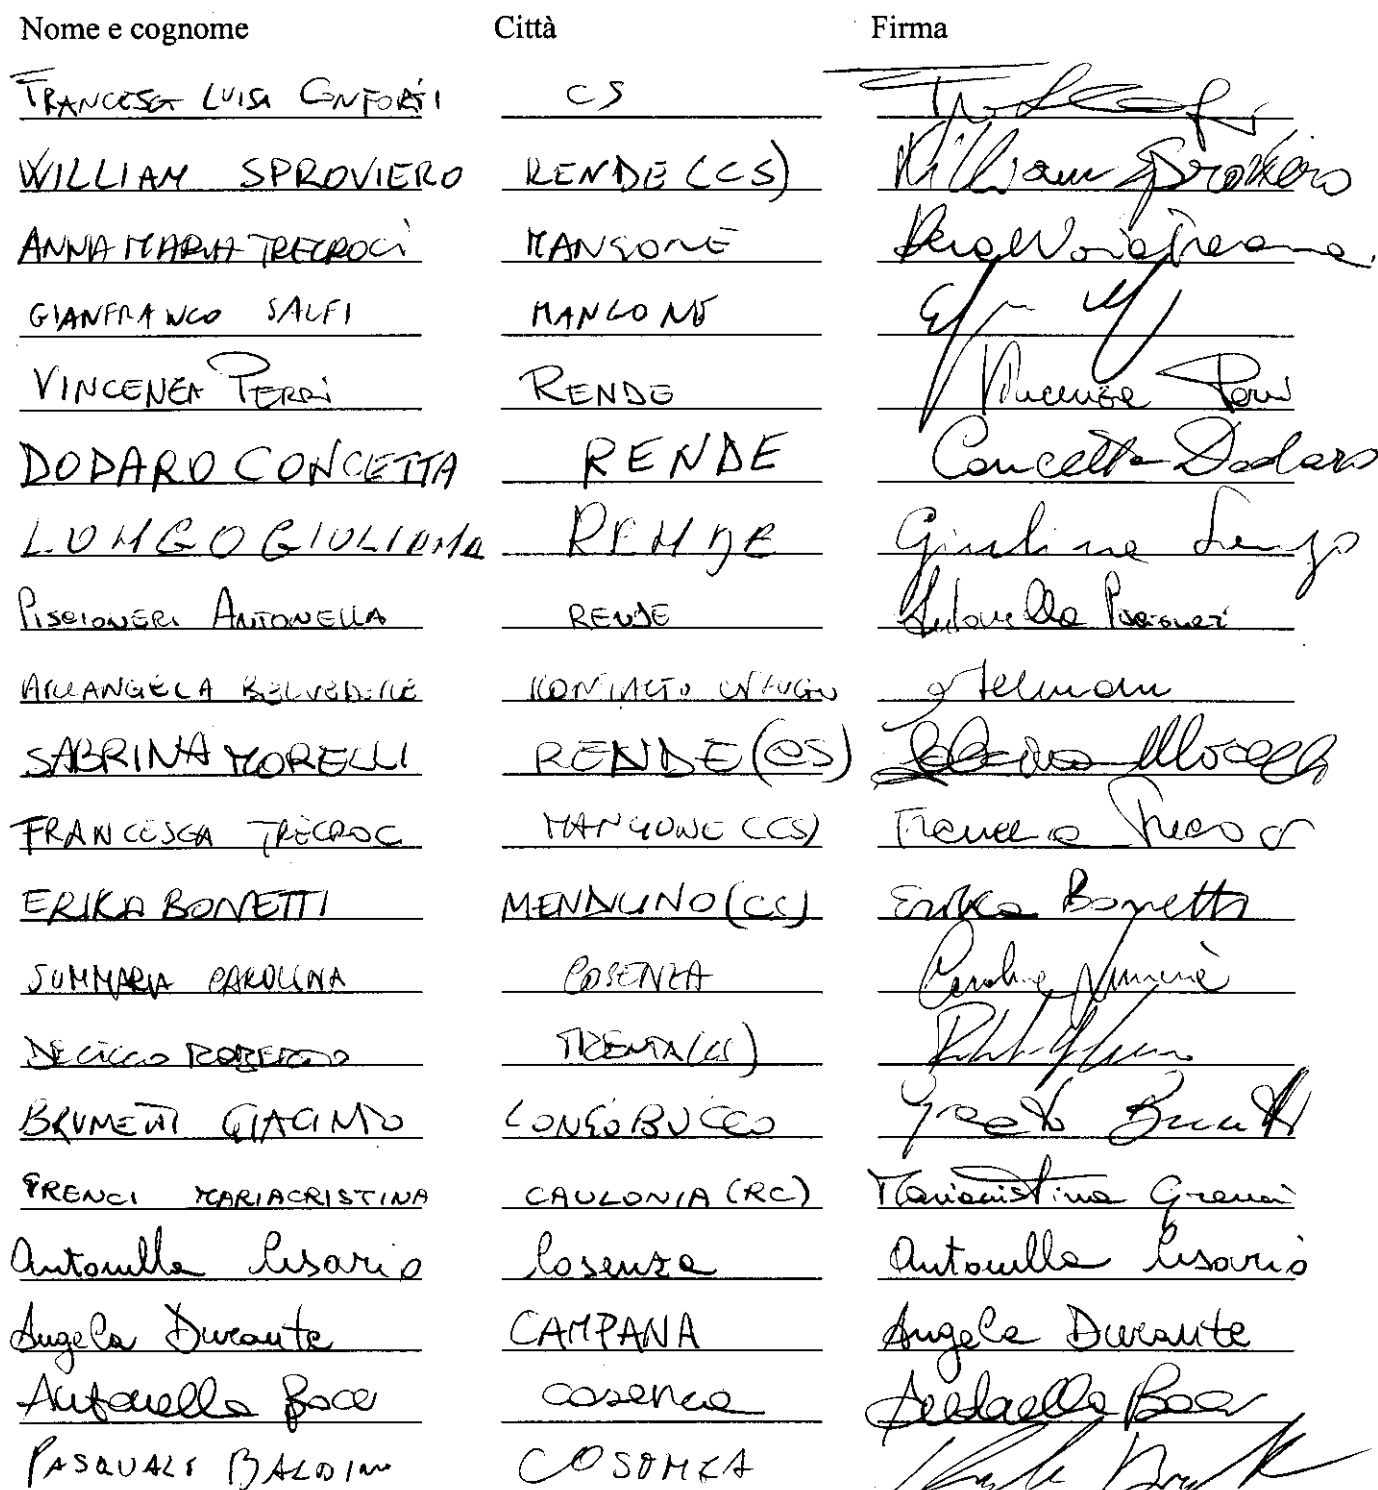 Nome e cognome Città Firma
FRANCESCA LUISA CONFORTI CS
WILLIAM SPROVIERO RENDE (CS) William Sproviero
ANNA MARIA TRECROCI MANGONE
GIANFRANCO SALFI MANGONE
VINCENZA PERRI RENDE Vincenza Perri
DODARO CONCETTA RENDE Concetta Dodaro
LONGO GIULIANA RENDE Giuliana Longo
PISCIONERI ANTONELLA RENDE Antonella Piscioneri
ARCANGELA BELVEDERE MONTALTO UFFUGO
SABRINA MORELLI RENDE (CS) Sabrina Morelli
FRANCESCA TRECROC MANGONE (CS) Francesca
ERIKA BONETTI MENDICINO (CS) Erika Bonetti
SUMMARIA CAROLINA COSENZA
DECICCO ROBERTO TRENTA (CS)
BRUNETTI GIACINTO LONGOBUCCO
MARIACRISTINA CAULONIA (RC) Mariacristina
Antonella Cesario Cosenza Antonella Cesario
Angela Durante CAMPANA Angela Durante
Antonella Cosenza
PASQUALE BALDINO COSENZA